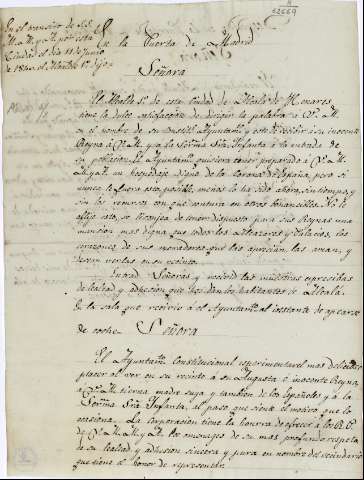 En el transito de S.S.
M.M. y A. por esta
Ciudad el dia 11 de Junio
de 1840 el Alcalde 1º
En la Puerta de Madrid
Señora
El Alcalde 1º de esta Ciudad de Alcalá de Henares
tiene la dulce satisfaccion de dirigir la palabra a V. M.
en el nombre de su Constitl. Ayuntamto. y este de recivir á su inocente
Reyna á V. M. y a la Serma. Sra. Infanta á la entrada de
su poblacion. El Ayuntamto. quisiera tener preparado á V.V. M.
M. y A. un hospedaje digno de la Corona de España, pero si
nunca le fuera esto posible, menos lo ha sido ahora, sin tiempo, y
sin los recursos con que contara en otros
aflije esto, se lisonjea de tener dispuesta para sus Reynas una
mansion mas digna que todos los Alcazares y Palacios, los
corazones de sus moradores que las aprecian, las aman, y
desean verlas en su recinto.
Entrad Señoras y recivid las muestras expresivas
de lealtad y adhesion que los dan los habitantes de Alcalá.
En la sala que recivio á el Ayuntamto. al instante de apearse
de coche
Señora
El Ayuntamto. Constitucional experimenta el mas delicioso
placer al ver en su recinto á su Augusta é inocente Reyna,
á V. M. tierna madre suya y tambien de los Españoles y a la
Serma. Sra. Infanta, al paso que siente el motivo que lo
ocasiona. La corporacion tiene la honra de ofrecer á los R. P.
de V.V. M.M. y A. los omenages de su mas profundo respeto,
de su lealtad y adhesion sincera y pura en nombre del vecindario
que tiene el honor de representar.